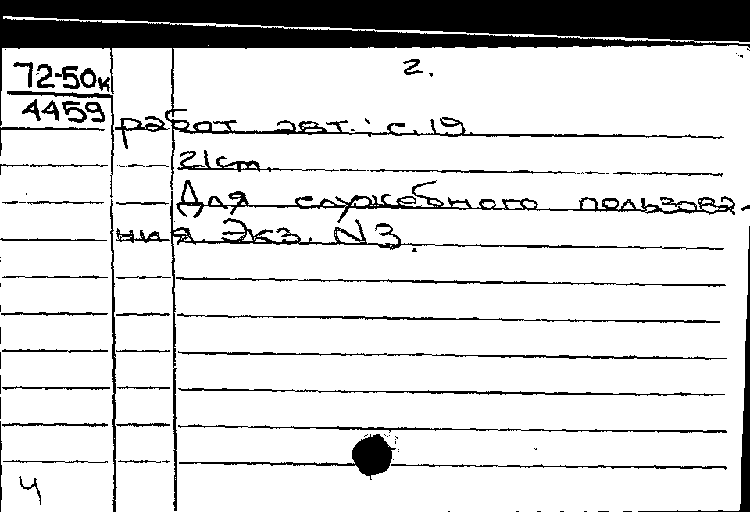 2.
72-50к
4459
работ авт.: с.19
21см.
Для служебного пользова-
ния. Экз. N3.
Ч